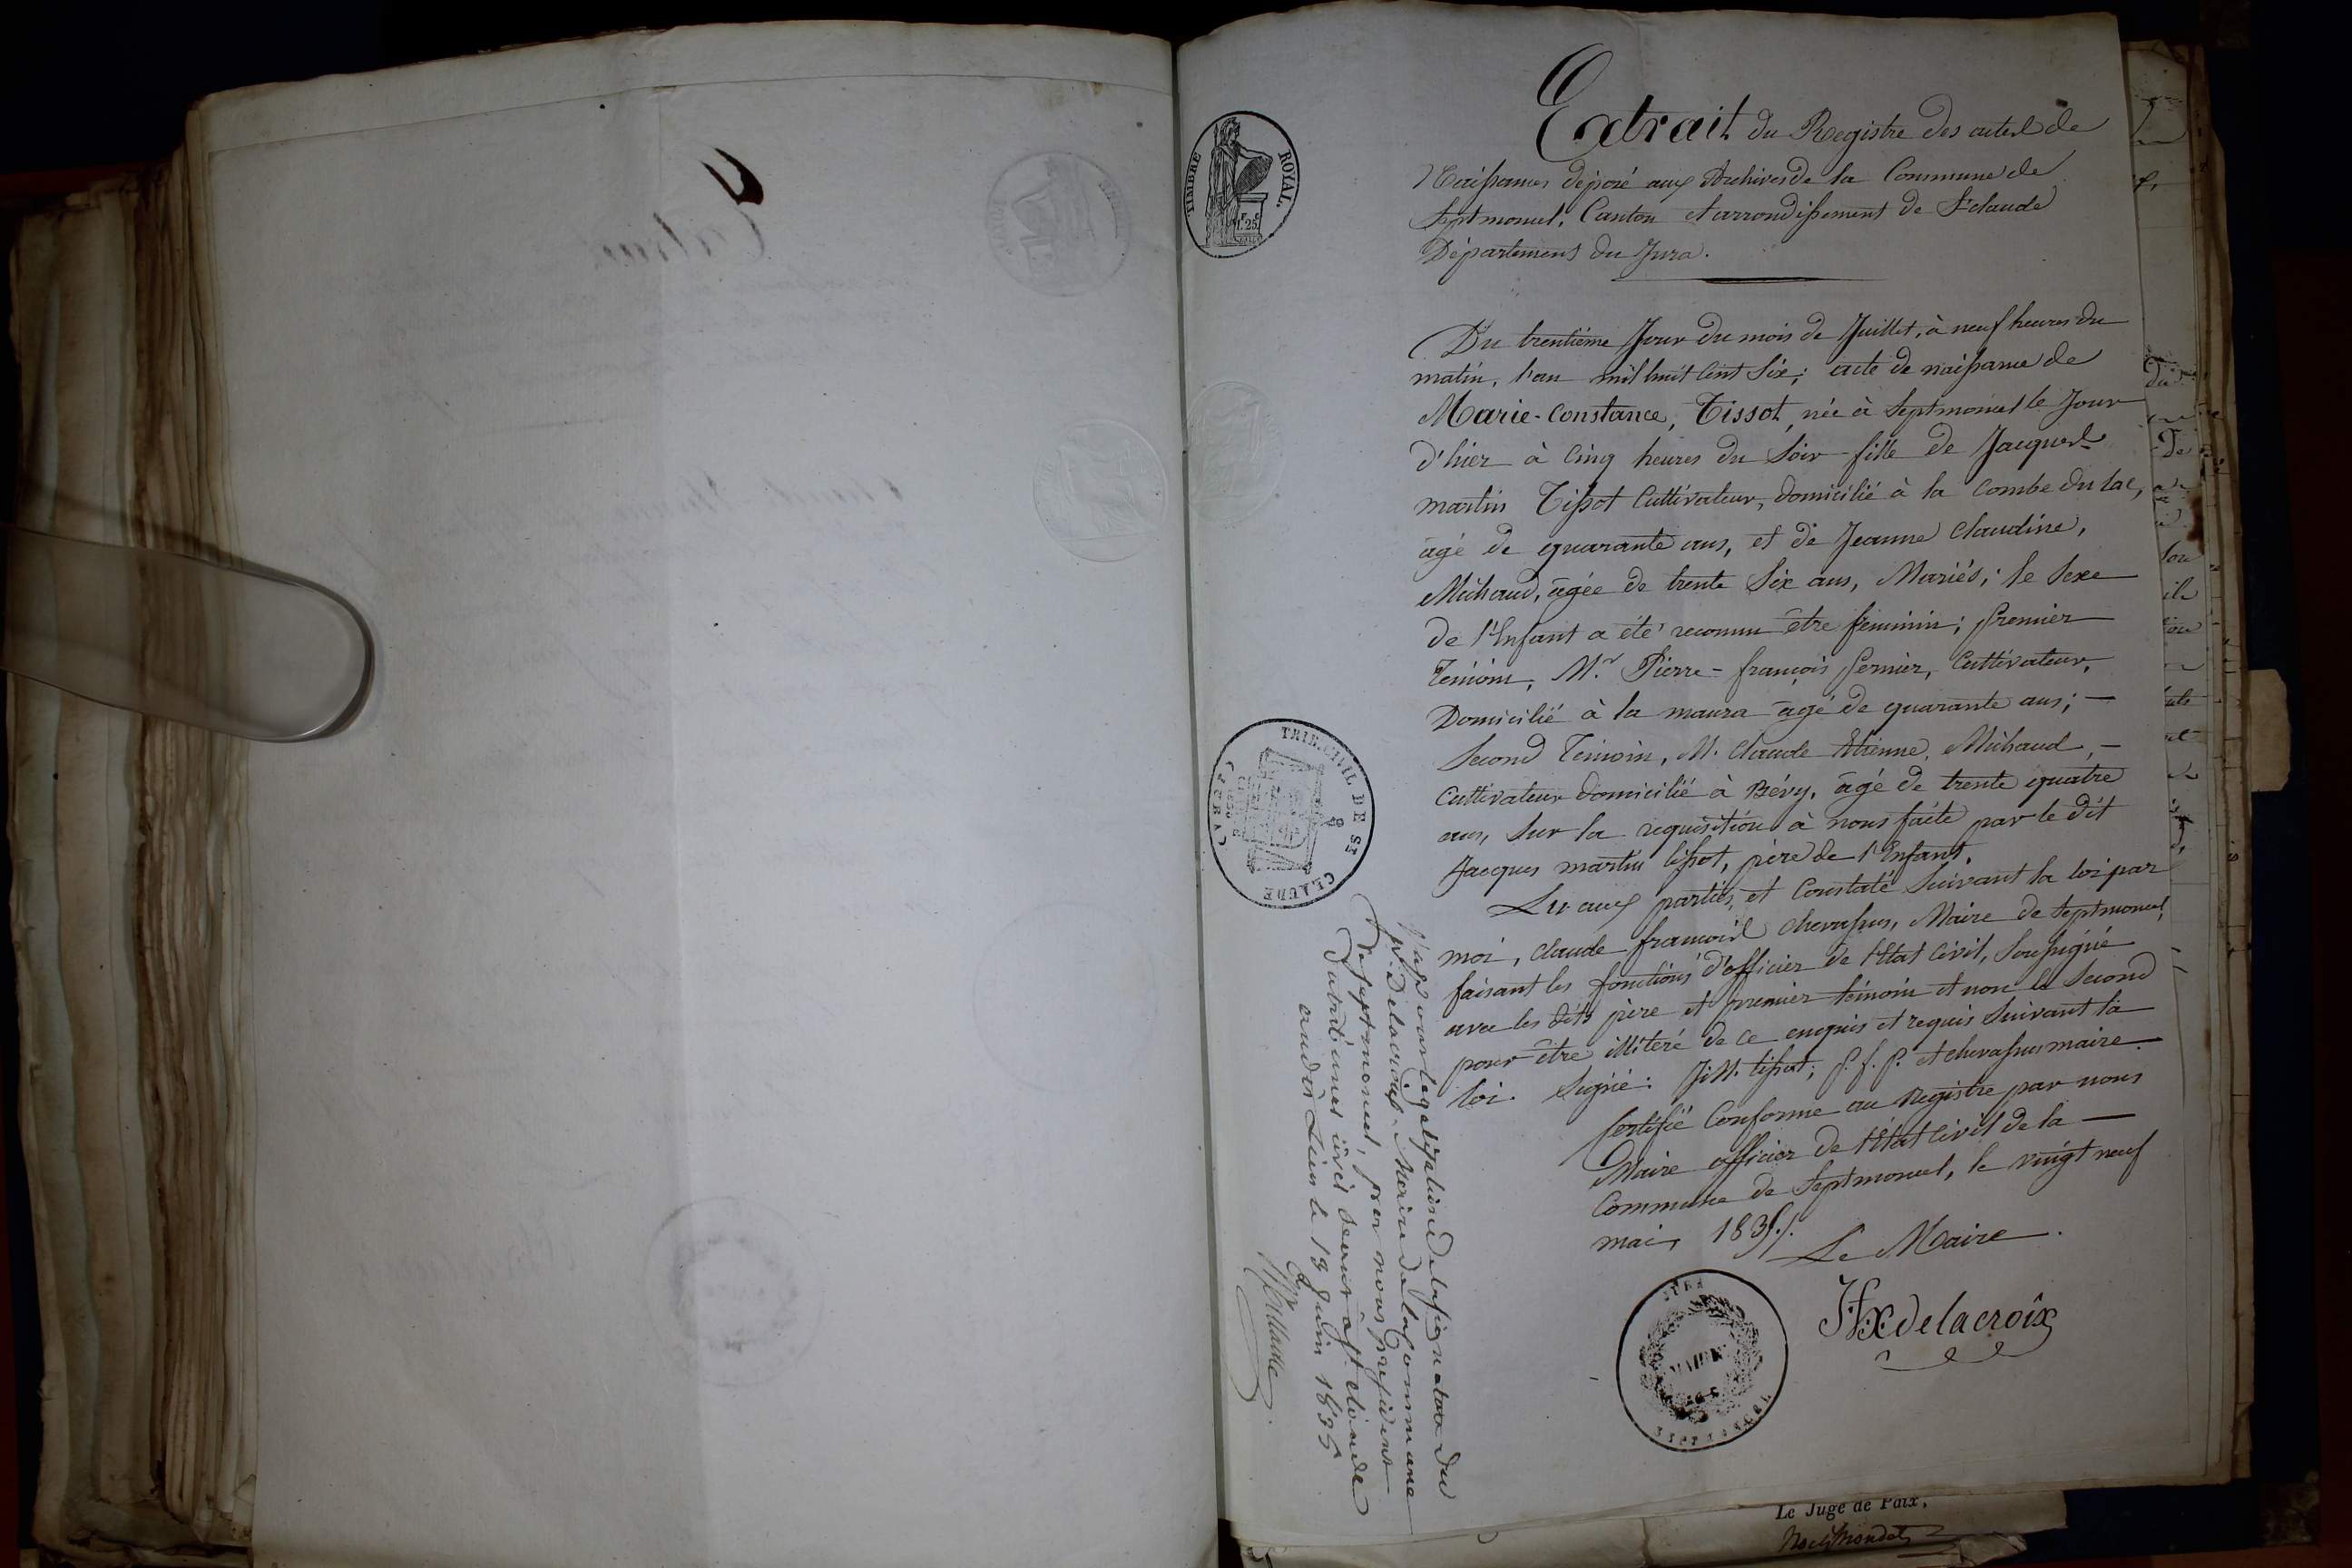 TIMBRE ROYAL.
1.25
Extrait du Registre des actes de
Naissances déposé aux Archives de la Commune de
Septmoncel, Canton et arrondissement de St. claude
Département du Jura.
Du trentième Jour du mois de Juillet, à neuf heures du
matin, l'an mil huit Cent Six; acte de naissance de
Marie-Constance, Tissot, née à Septmoncel le Jour
d'hier à Cinq heures du Soir fille de Jacques
martin Tissot Cultivateur, domicilié à la Combe du lac,
agé de quarante ans, et de Jeanne Claudine,
Michaud, agée de trente Six ans, Mariés; le Sexe
de l'Enfant a été reconnu être féminin; Premier
Témoin, Mr. Pierre-françois Pernier, Cultivateur,
Domicilié à la maura agé de quarante ans;
Second Témoin, M. Claude Etienne, Michaud,
Cultivateur domicilié à Bévy, agé de trente quatre
ans, Sur la requisition à nous faite par le dit
Jacques martin tissot, père de l'Enfant.
Lu aux parties, et Constaté Suivant la loi par
moi, Claude françois Chevassus, Maire de Septmoncel,
faisant les fonctions d'officier de l'Etat Civil, Soussigné
avec les dits père et premier témoin et non le Second
pour être illiteré de ce enquis et requis Suivant la
loi. Signé: J. M. tissot; P. f. P. et chevassus maire.
Certifié Conforme au Registre par nous
Maire officier de l'Etat Civil de la
Commune de Septmoncel, le vingt neuf
mai, 1835.
Le Maire.
Fx delacroix
MAIRIE
SEPTMONCEL
TRIB. CIVIL DE ST CLAUDE
JURA
Vu pour légalisation de la signature du
Sr. Delacroix, Maire de la commune
de septmoncel, par nous président
du tribunal civil séant à St. claude
audit lieu le 19 Juin 1835
Le Juge de Paix,